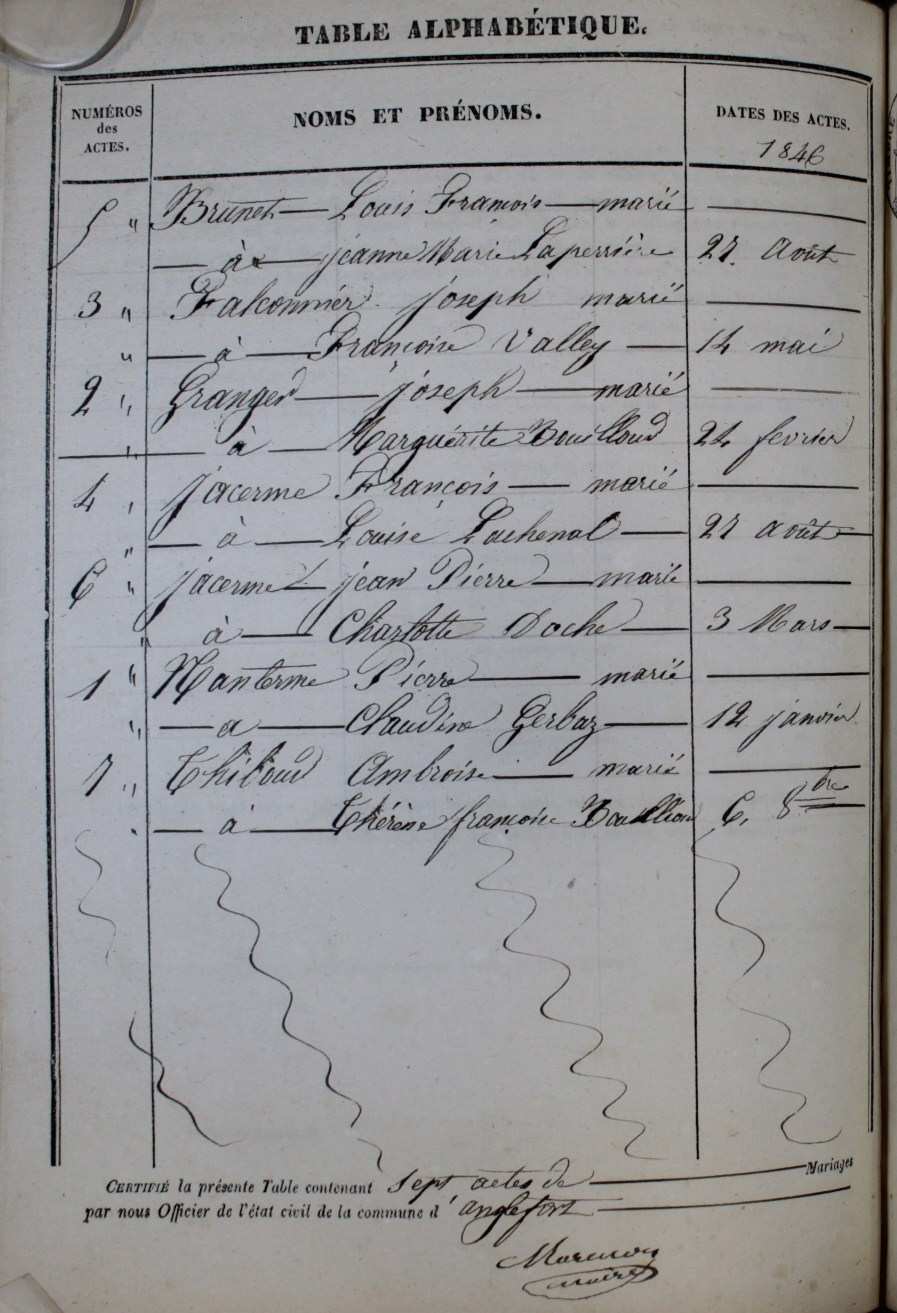 TABLE ALPHABÉTIQUE.
NUMÉROS des ACTES. NOMS ET PRÉNOMS. DATES DES ACTES.
1846
5 " Brunet — Louis François — marié —
— à — jeanne Marie Laperrière 27. Août
3 " Falconnier joseph marié —
" — à — Françoise Valley — 14 mai
2 " Granger — joseph — marié —
" — à — Marguérite Bouilloud 24 fevrier
4 " Jacerme François — marié —
" — à — Louise Lachenal — 27 Août —
6 " jacermet jean Pierre — marié —
" à — Charlotte Doche — 3 Mars —
1 " Nanterme Pierre — marié —
" — a — Claudine Gerbaz — 12 janvier
7 " Thiboud Ambroise — marié —
" — à — Thérèse françoise 6. 8bre
CERTIFIÉ la présente Table contenant sept actes de — Mariages
par nous Officier de l'état civil de la commune d'anglefort —
maire